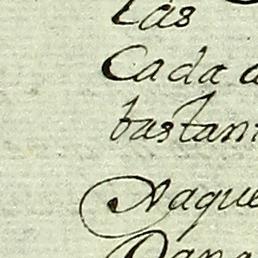 Las
Cada a
bastan
Naque